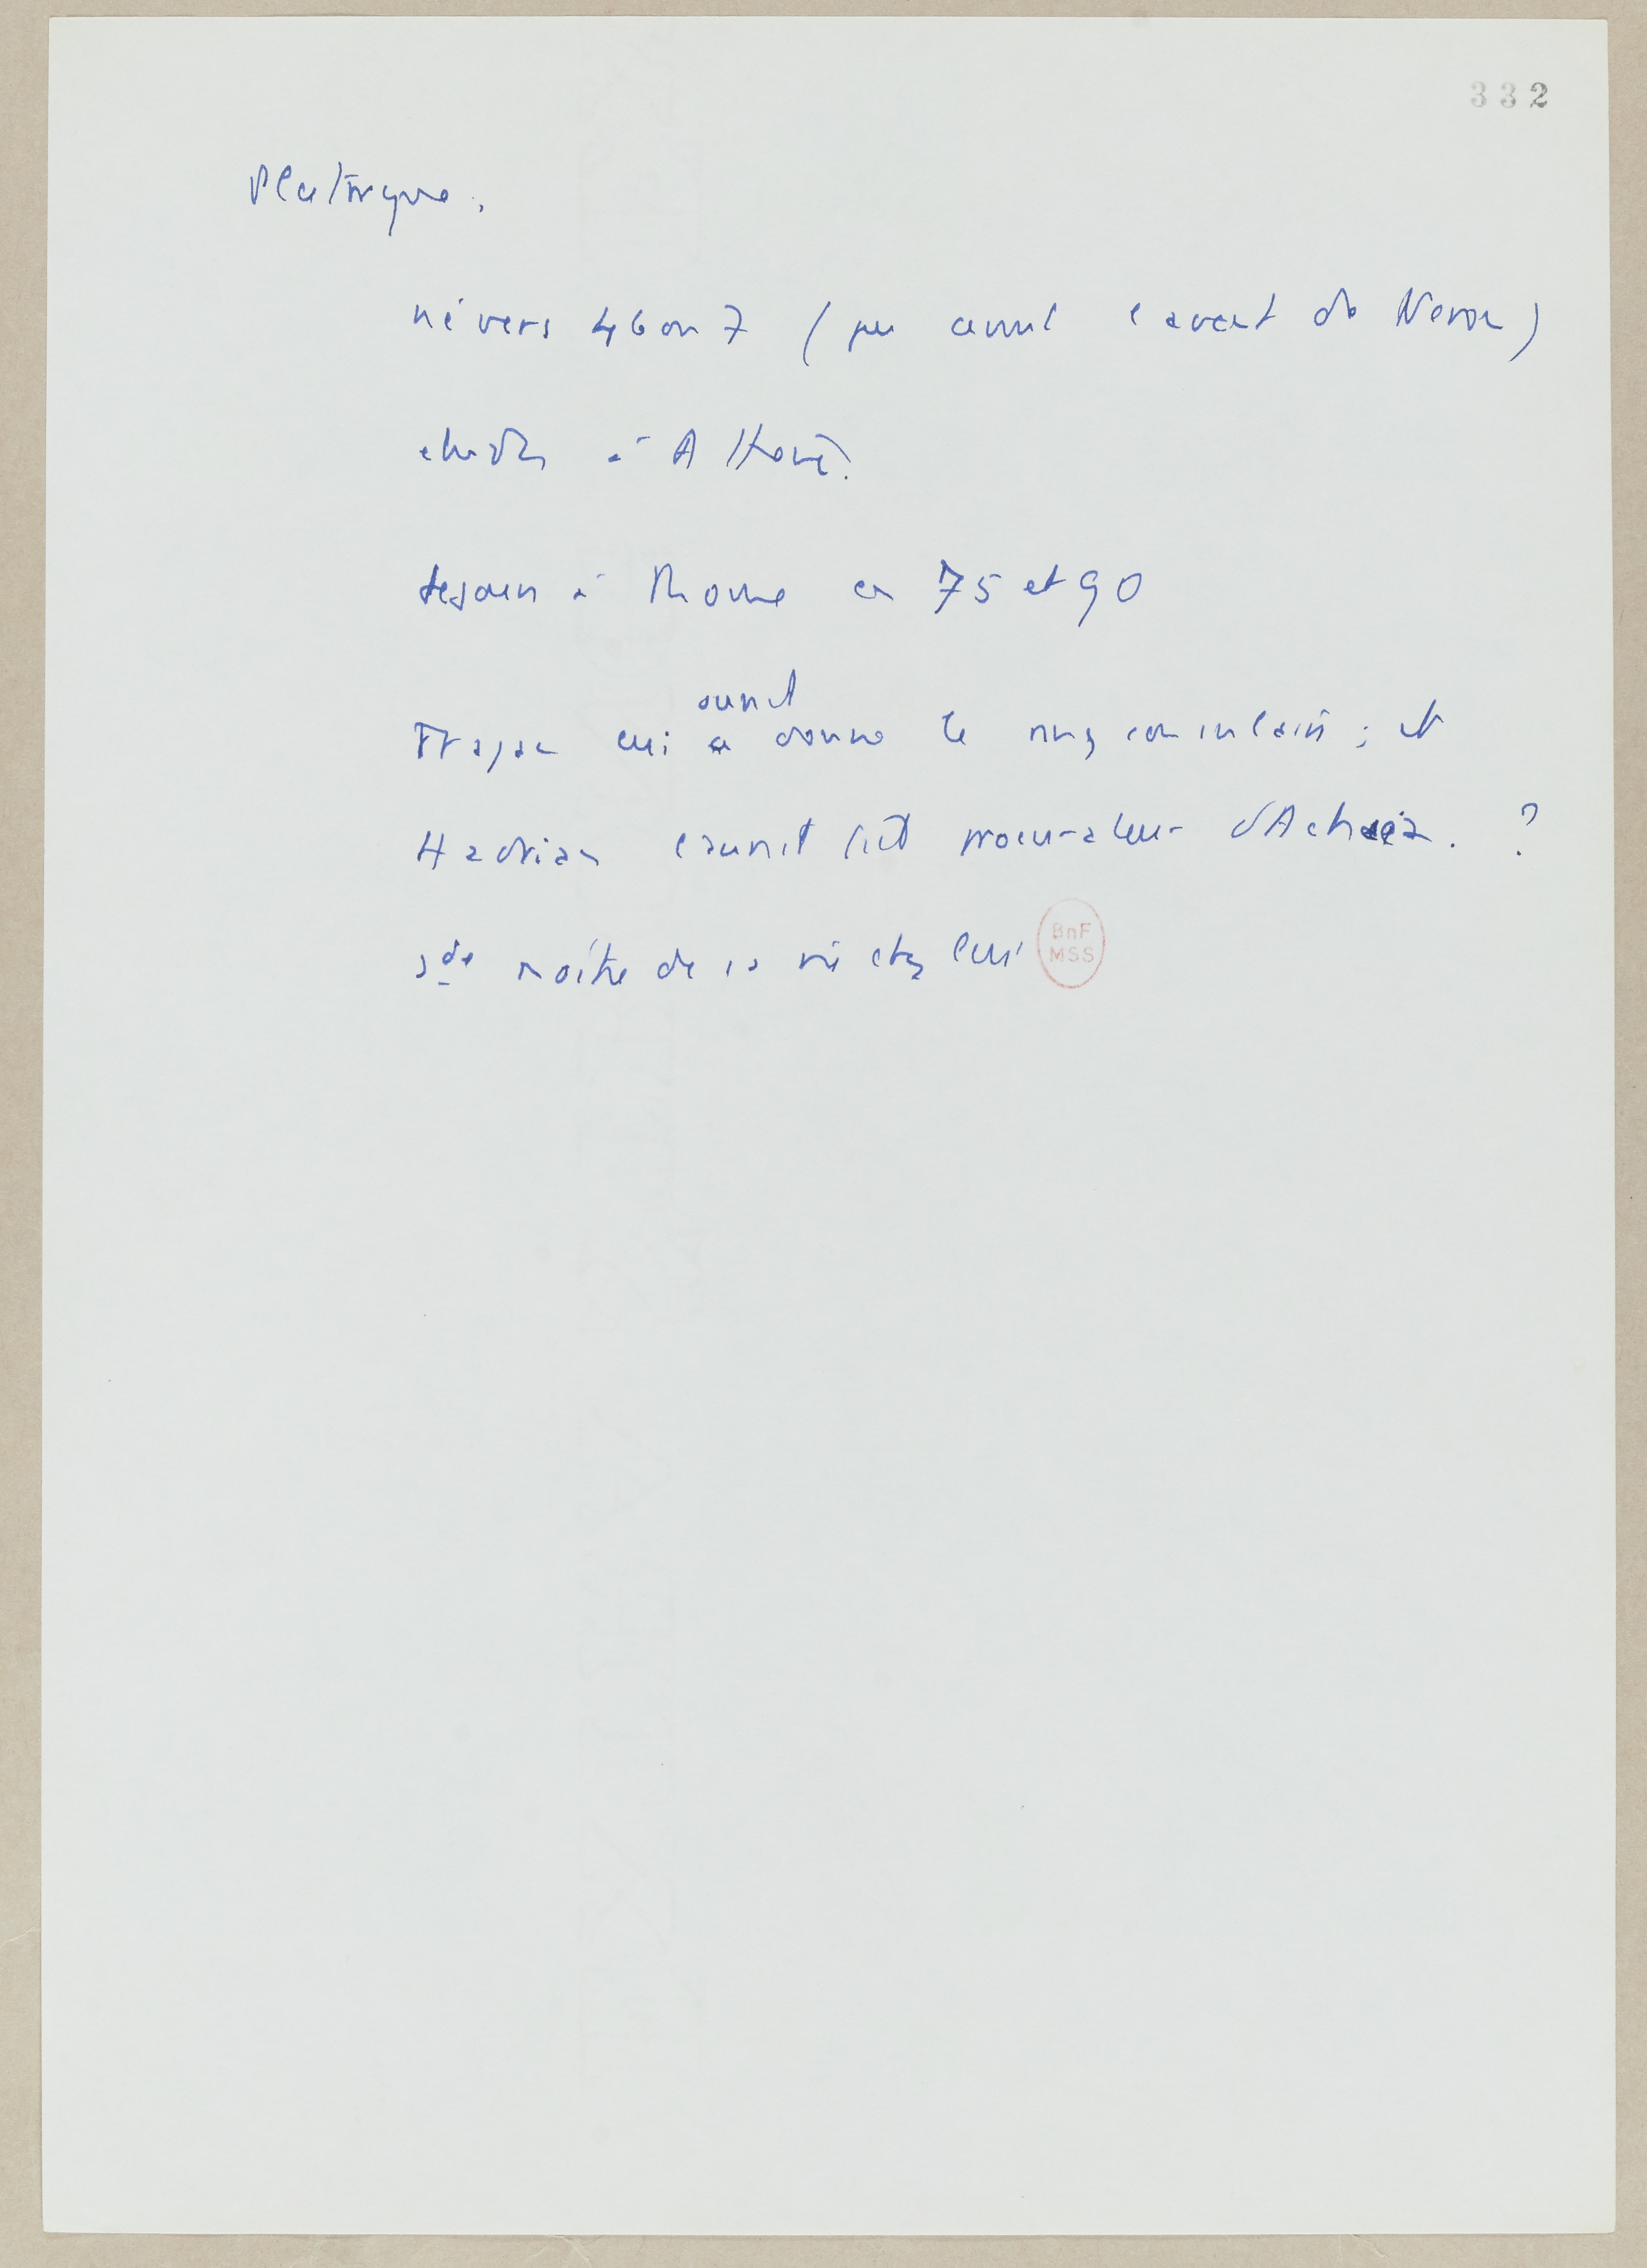 332
Plutarque.
né vers 46 ou 7 (peu avant l'avent de Néron)
études à Athènes.
séjours à Rome en 75 et 90
aurait
Trajan lui a donné le rang consulaire ; et
Hadrian l'aurait fait procurateur d'Achaia. ?
2de moitié de sa vie chez lui
BnF
MSS